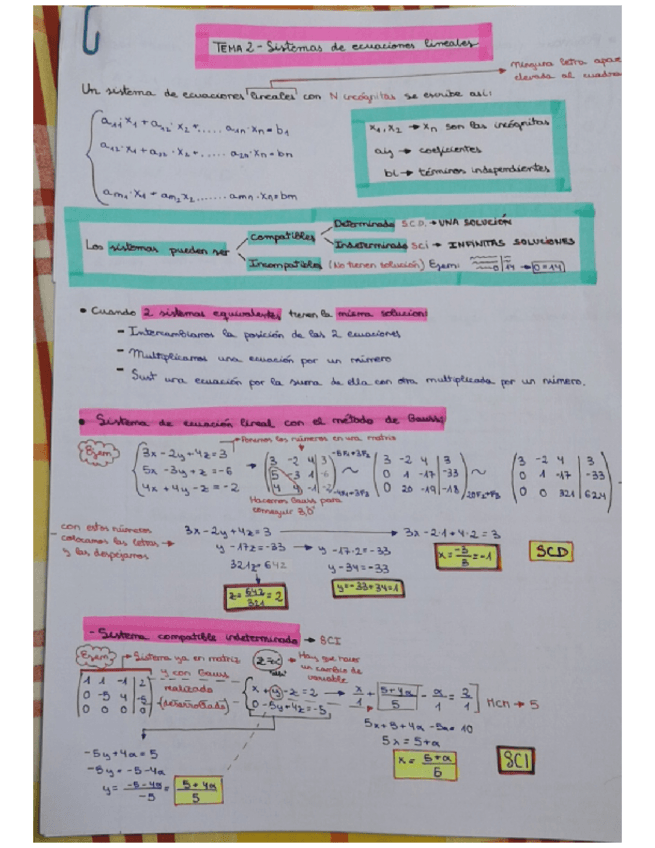 TEMA 2 - Sistemas de ecuaciones lineales
ninguna letra apar
elevada al cuadra
Un sistema de ecuaciones lineales con N incógnitas se escribe así:
a11·x1 + a12·x2 + ..... a1n·xn = b1
a12·x1 + a22·x2 + ..... a2n·xn = bn
am1·x1 + am2x2 ....... amn·xn = bm
x1, x2 → xn son las incógnitas
aij → coeficientes
bi → términos independientes
Los sistemas pueden ser
Compatibles
Determinado SCD. → UNA SOLUCIÓN
Indeterminado Sci → INFINITAS SOLUCIONES
Incompatibles (No tienen solución) Ejem: 0 | 14 → 0=14
• Cuando 2 sistemas equivalentes tienen la misma solución:
- Intercambiamos la posición de las 2 ecuaciones
- Multiplicamos una ecuación por un número
- Sust una ecuación por la suma de ella con otra multiplicada por un número.
• Sistema de ecuación lineal con el método de Gauss:
Ejem
Ponemos los números en una matriz
3x - 2y + 4z = 3
5x - 3y + z = -6
4x + 4y - z = -2
3 -2 4 | 3
5 -3 1 | -6
4 4 -1 | -2
Hacemos Gauss para
conseguir 3,0
~
3 -2 4 | 3
0 1 -17 | -33
0 20 -19 | -18
~
3 -2 4 | 3
0 1 -17 | -33
0 0 321 | 624
con estos números
colocamos las letras →
y las despejamos
3x - 2y + 4z = 3
y - 17z = -33
321z = 642
z = 642/321 = 2
y - 17·2 = -33
y - 34 = -33
y = -33 + 34 = 1
3x - 2·1 + 4·2 = 3
x = -3/3 = -1
SCD
- Sistema compatible indeterminado → SCI
Ejem
Sistema ya en matriz
y con Gauss
realizado
(desarrollado)
1 1 -1 | 2
0 -5 4 | -5
0 0 0 | 0
z = α
Hay que hacer
un cambio de
variable
x + y - z = 2
0 - 5y + 4z = -5
x/1 + 5+4α/5 - α/1 = 2/1 ] MCM → 5
5x + 5 + 4α - 5α = 10
5x = 5 + α
x = 5+α/5
SCI
-5y + 4α = 5
-5y = -5 - 4α
y = -5-4α/-5 = 5+4α/5